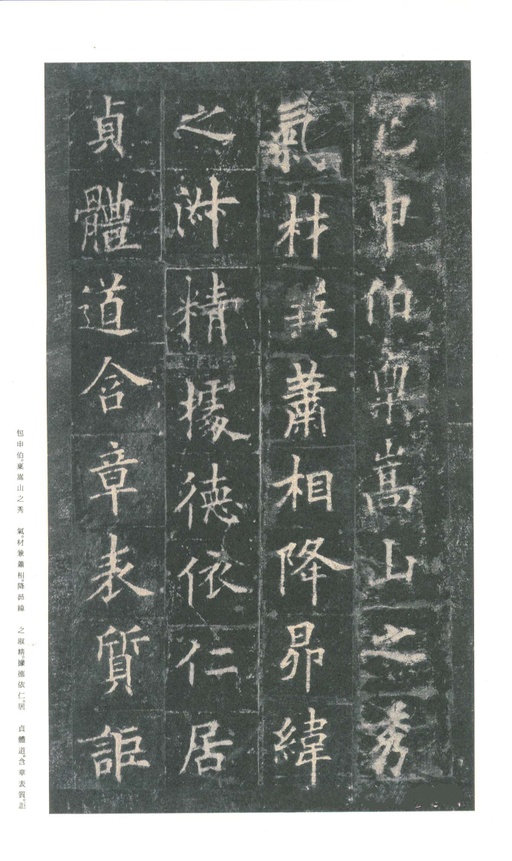 包申伯稟嵩山之秀
氣材兼蕭相降昴緯
之淑精據德依仁居
貞體道含章表質詎
包申伯。稟嵩山之秀 氣。材兼蕭相。降昴緯 之淑精。據德依仁。居 貞體道。含章表質。詎